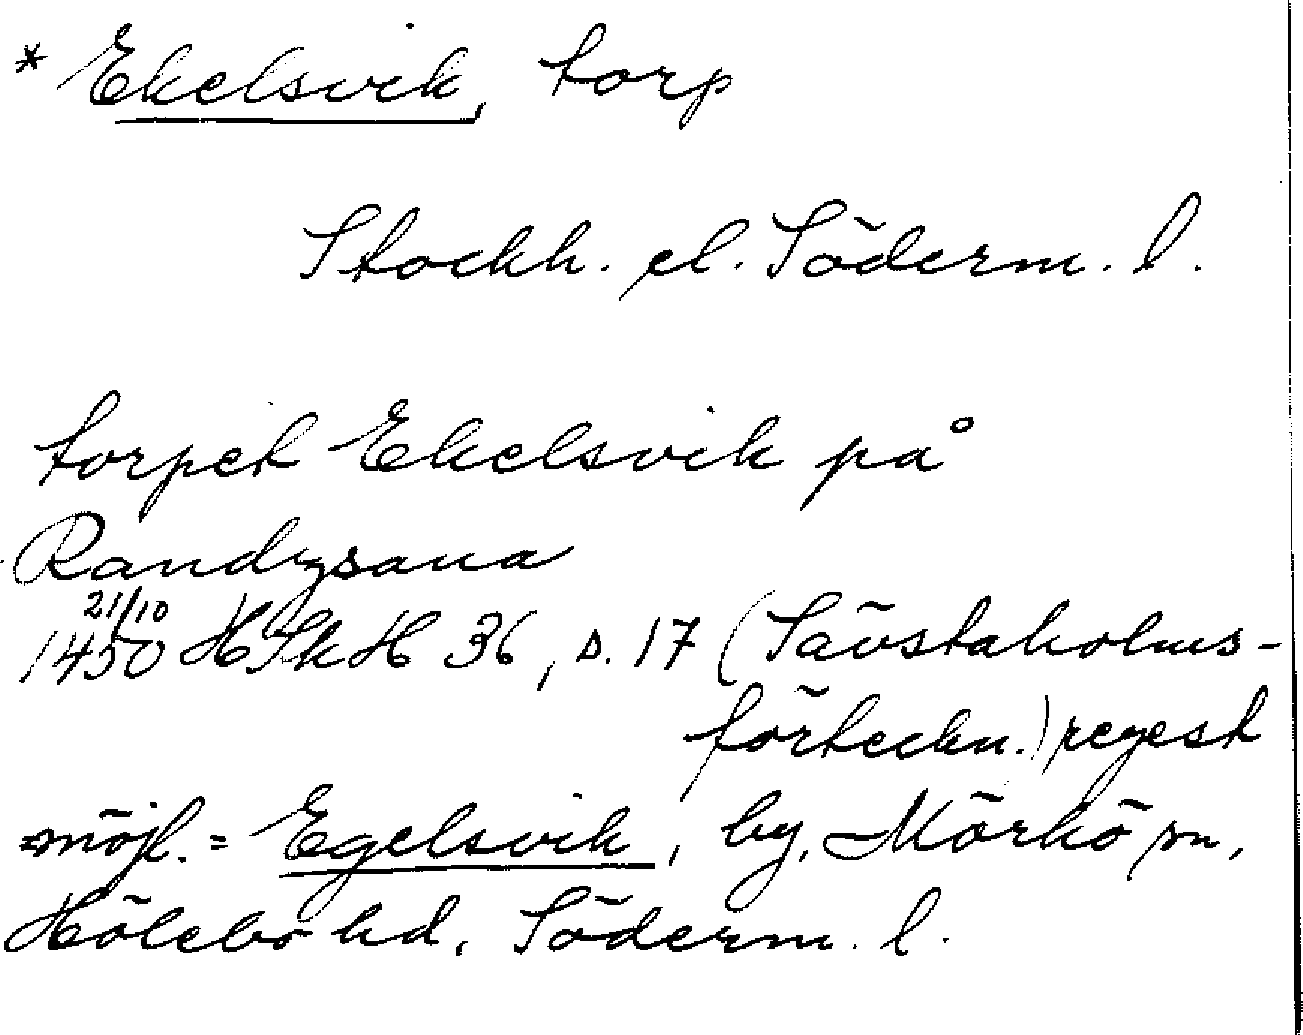 * Ekelsvik, torp
Stockh. el. Söderm. l.
torpet Ekelsvik på
Randzsana
21/10
1450 HSkH 36, s. 17 (Sävstaholms-
förteckn.) regest
möjl. = Egelsvik, by, Mörkö sn,
Hölebo hd, Söderm. l.